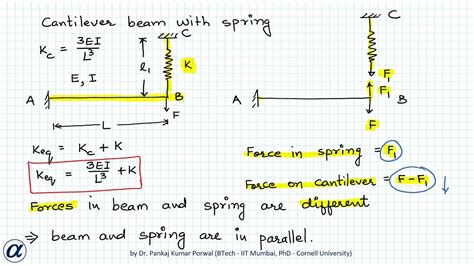 Cantilever beam with spring
K_c = 3EI/L³
E, I
A
B
C
l₁
K
F
L
C
F₁
F₁
A
B
F
K_eq = K_c + K
K_eq = 3EI/L³ + K
Force in spring = F₁
Force on cantilever = F - F₁ ↓
Forces in beam and spring are different
⇒ beam and spring are in parallel.
α
by Dr. Pankaj Kumar Porwal (BTech - IIT Mumbai, PhD - Cornell University)